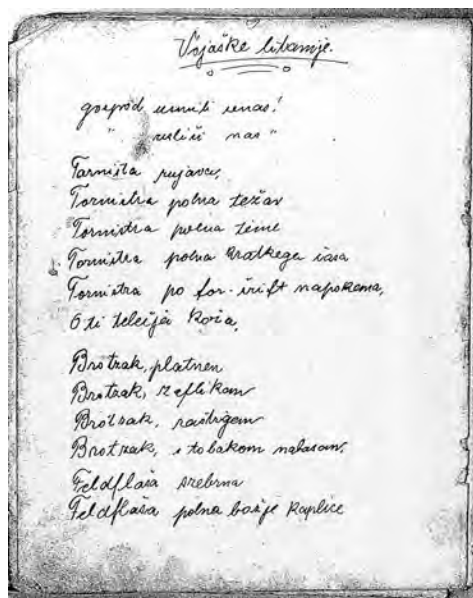 Vojaške litanije.
gospod usmili se nas!
" usliši nas "
Tornistra rujava,
Tornistra polna težav
Tornistra polna teme
Tornistra polna kratkega časa
Tornistra po for-šrift napokana,
O ti telečja koža,
Brotzak, platnen
Brotzak, z eflikam
Brotsak, rastrgan
Brotzak, s tobakom nabasan.
Feldflaša srebrna
Feldflaša polna božje kaplice